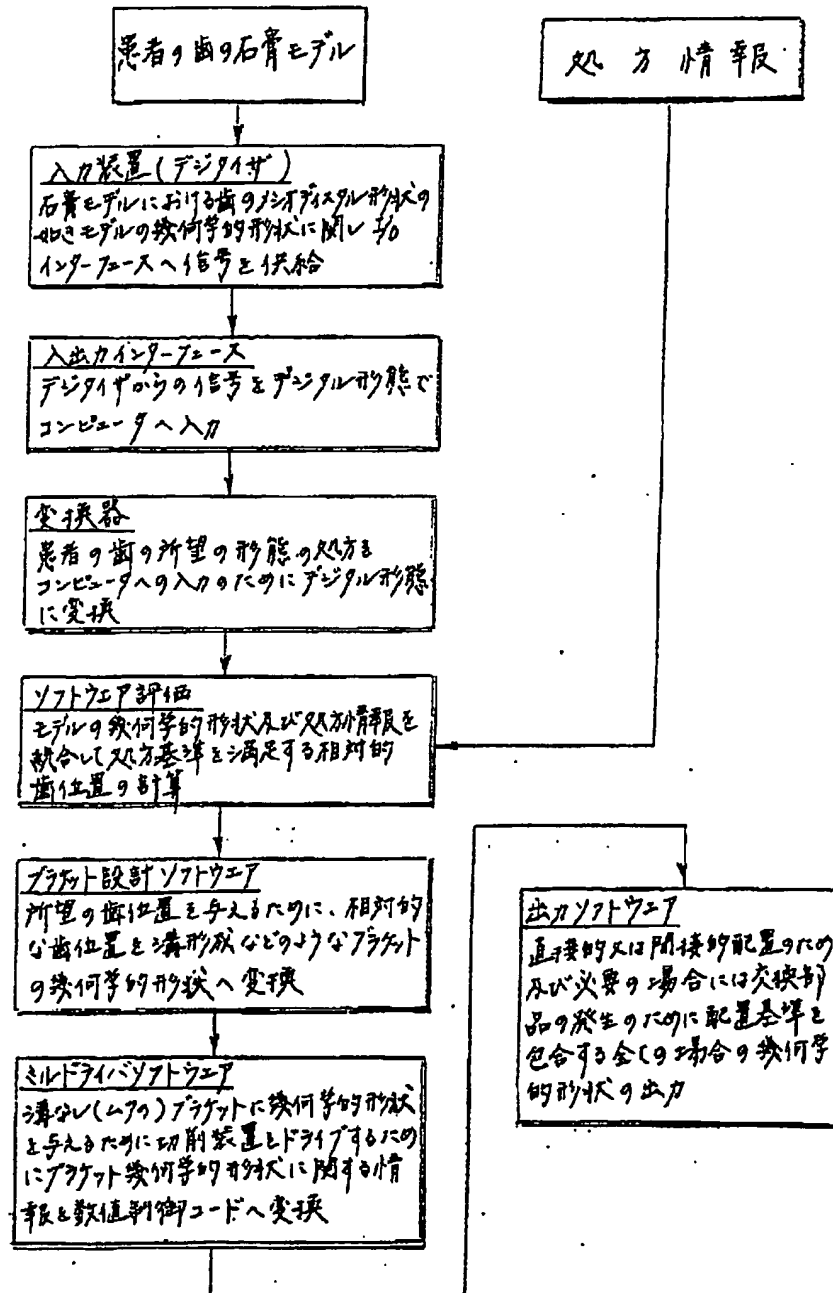 患者の歯の石膏モデル
処方情報
入力装置(デジタイザ)
石膏モデルにおける歯のメシオディスタル形状の
如きモデルの幾何学的形状に関し I/O
インターフェースへ信号を供給
入出力インターフェース
デジタイザからの信号をデジタル形態で
コンピュータへ入力
変換器
患者の歯の所望の形態の処方を
コンピュータへの入力のためにデジタル形態
に変換
ソフトウエア評価
モデルの幾何学的形状及び処方情報を
統合して処方基準を満足する相対的
歯位置の計算
ブラケット設計ソフトウエア
所望の歯位置を与えるために、相対的
な歯位置を溝形状などのようなブラケット
の幾何学的形状へ変換
ミルドライバソフトウエア
溝なし(ムアの)ブラケットに幾何学的形状
を与えるために切削装置をドライブするため
にブラケット幾何学的形状に関する情
報を数値制御コードへ変換
出力ソフトウエア
直接的又は間接的配置のため
及び必要の場合には交換部
品の発生のために配置基準を
包含する全ての場合の幾何学
的形状の出力